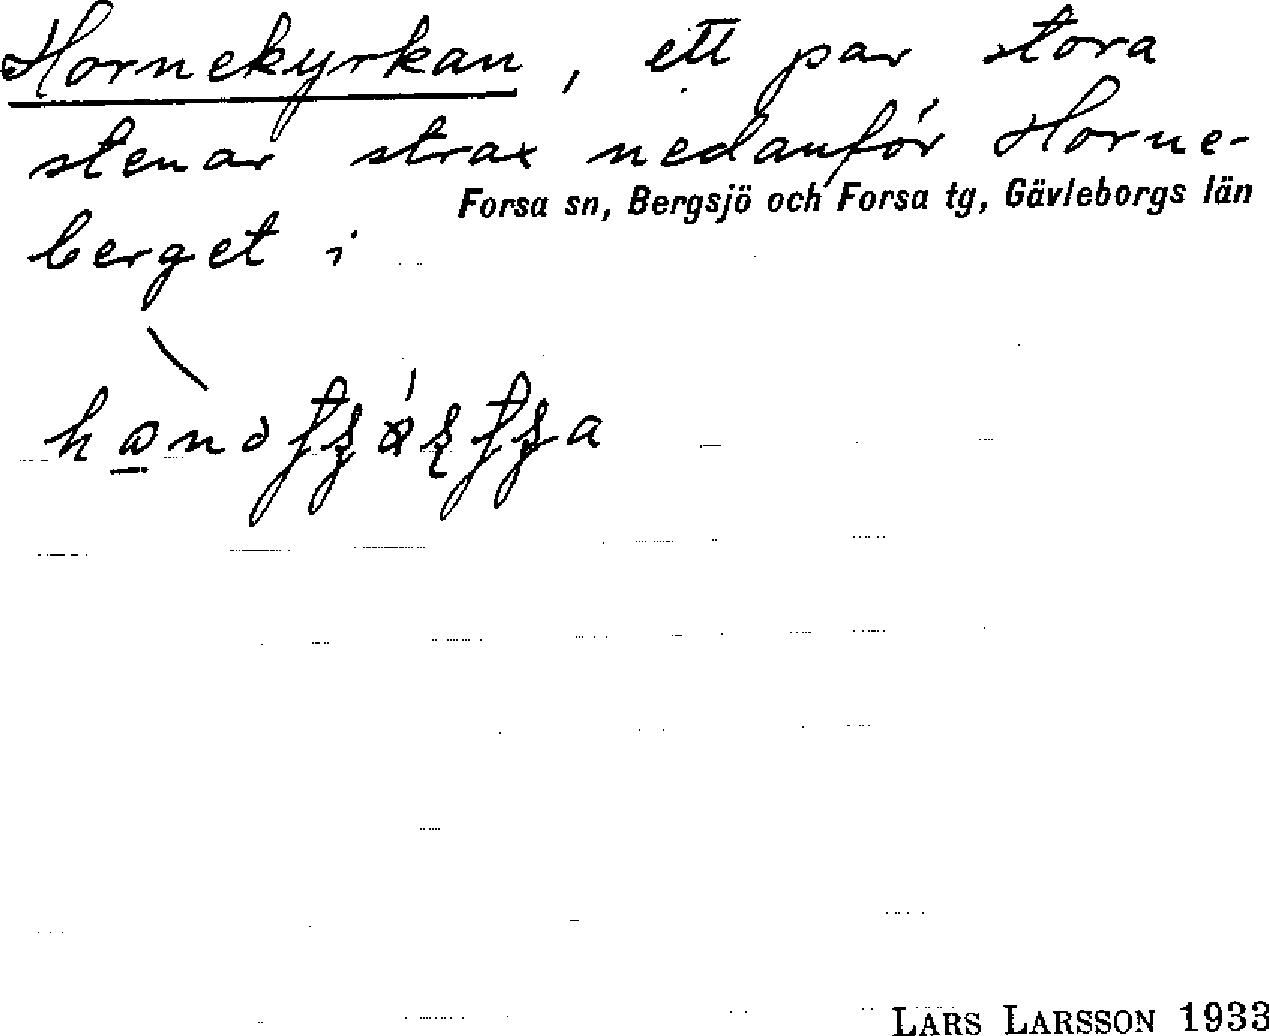 Hornekyrkan, ett par stora
stenar strax nedanför Horne-
Forsa sn, Bergsjö och Forsa tg, Gävleborgs län
berget i
LARS LARSSON 1933